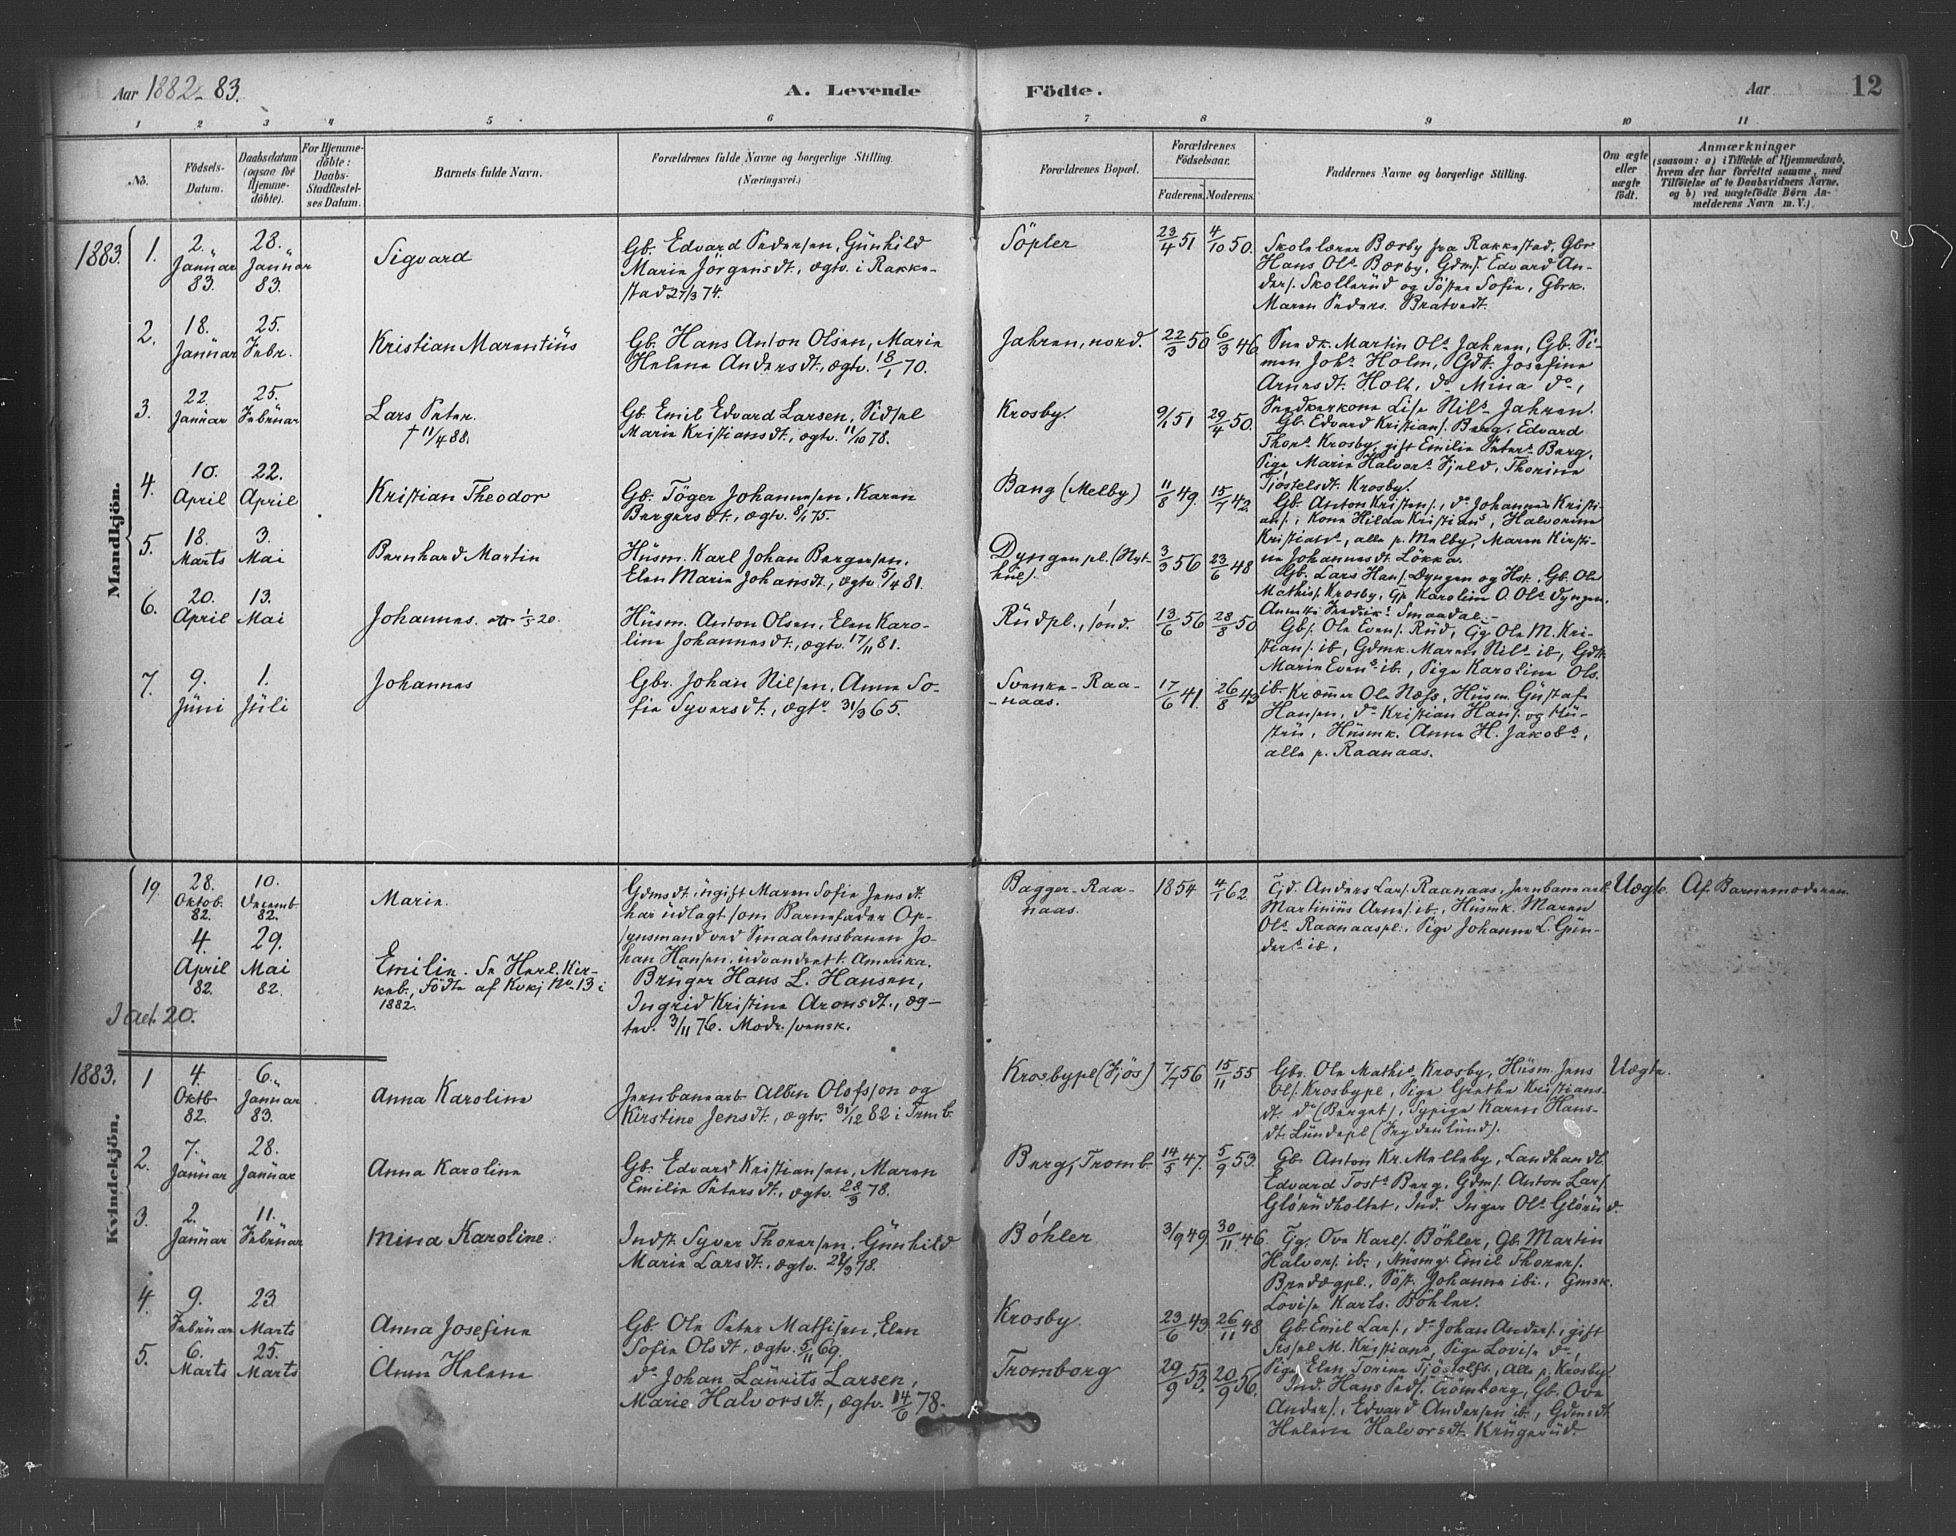 Aar 1882-83.
A. Levende
Födte.
Aar
12
1 2 3 4 5 6 7 8 9 10 11
No.
Födsels-Datum.
Daabsdatum (ogsaa for Hjemmedöbte).
For Hjemmedöbte: Daabs-Stadfæstelses Datum.
Barnets fulde Navn.
Forældrenes fulde Navne og borgerlige Stilling.
(Næringsvei.)
Forældrenes Bopæl.
Forældrenes Födselsaar.
Faderens. Moderens.
Faddernes Navne og borgerlige Stilling.
Om ægte eller uægte födt.
Anmærkninger
(saasom: a) i Tilfælde af Hjemmedaab, hvem der har forrettet samme, med Tilföielse af to Daabsvidners Navne, og b) ved uægtefödte Börn Anmelderens Navn m. V.)
Mandkjön.
1883. 1. 2. Januar 83. 28. Januar 83.
Sigvard
Gb. Edvard Pedersen, Gunhild
Marie Jörgensdt., ægtv. i Rakke-
stad 27/3 74.
Söpler
23/4 51 4/10 50.
Skolelærer Bærby fra Rakkestad, Gbr.
Hans Ols. Bærby, Gdms. Edvard An-
ders. Skollerud og Söster Sofie, Gbrk.
Maren Peders. Bratvedt.
2. 18. Januar 25. Febr.
Kristian Marentius
Gb. Hans Anton Olsen, Marie
Helene Andersdt., ægtv. 18/1 70.
Jahren, nord.
22/3 50 6/3 46.
Snedk. Martin Ols. Jahren, Gb. Si-
men Johs. Holm, Gdt. Josefine
Arnesdt. Holt, do Mina do,
Snedkerkone Lise Nils. Jahren.
3. 22. Januar 25. Februar
Lars Peter.
† 11/4 88.
Gb. Emil Edvard Larsen, Sidsel
Marie Kristiansdt., ægtv. 11/10 78.
Krosby.
9/1 51 29/4 50.
Gb. Edvard Kristians. Berg, Edvard
Thors. Krosby, gift Emilie Peters. Berg,
Pige Marie Halvors. Fjeld, Thorine
Tjöstelsdt. Krosby.
4. 10. April 22. April
Kristian Theodor
Gb. Töger Johannesen, Karen
Bergersdt., ægtv. 8/1 75.
Bang (Melby)
11/8 49. 15/7 42.
Gb. Anton Kristens., do Johannes Kristi-
ans., Kone Hilda Kristians., Halvorine
Kristians., alle p. Melby, Maren Kirsti-
ne Johannesdt. Lökka.
5. 18. Marts 3. Mai
Bernhard Martin
Husm. Karl Johan Bergersen,
Elen Marie Johansdt., ægtv. 5/4 81.
Dyngenpl. (Nyt-
hus).
3/3 56 23/6 48
Gb. Lars Hans. Dyngen og Hst., Gb. Ole
Mathis. Krosby, Gp. Karoline O. Ols. Dyngen,
Annette Fredrik. Smaadal.
6. 20. April 13. Mai
Johannes.
Husm. Anton Olsen, Elen Karo-
line Johannesdt., ægtv. 17/11 81.
Rudpl., sönd.
13/6 56 28/8 50
Gbs. Ole Evens. Rud, Gg. Ole M. Kri-
stians. ib, Gdmk. Maren Nils. ib, Gdt.
Marie Evens. ib., Pige Karoline Ols.
ib.
7. 9. Juni 1. Juli
Johannes
Gbr. Johan Nilsen, Anne So-
fie Syversdt., ægtv. 31/3 65.
Svenke-Raa-
naas.
17/6 41. 26/8 43
Kræmer Ole Næss, Husm. Gustaf
Hansen, do Kristian Hans. og Hu-
stru, Husmk. Anne H. Jakobs.,
alle p. Raanaas.
Kvindekjön.
19. 28. Oktob. 82. 10. Decemb. 82.
Marie.
Gdmsdt., ugift Maren Sofie Jensdt.
har udlagt som Barnefader Op-
synsmand ved Smaalensbanen Jo-
han Hansen, udvandret t. Amerika.
Bagger-Raa-
naas.
1854 4/1 62.
Gjd. Anders Lars. Raanaas, Jernbanearb.
Martinius Arnes. ib., Husmk. Maren
Ols. Raanaaspl., Pige Johanne L. Gun-
ders. ib.
Uægte.
Af Barnemoderen.
4. April 82. 29. Mai 82.
Emilie. Se Herl. Kir-
keb., Födte af Kvkj No 13 i
1882.
Bruger Hans L. Hansen,
Ingrid Kristine Aronsdt., æg-
tev. 3/11 76. Modr. svensk.
I alt. 20.
1883. 1 4. Oktb. 82 6. Januar 83.
Anna Karoline
Jernbanearb. Albin Olofsson og
Kirstine Jensdt., ægtv. 31/12 82 i Tromb.
Krosbypl (Fjös)
7/7 56 15/11 55
Gbr. Ole Mathis. Krosby, Husm. Jens
Ols. Krosbypl, Pige Grethe Kristians-
dt. do (Berget), Sypige Karen Hans-
dt. Lundepl (Frydenlund).
Uægte.
2. 7. Januar 28. Januar
Anna Karoline
Gb. Edvard Kristiansen, Maren
Emilie Petersdt., ægtv. 28/3 78.
Berg, Tromb.
14/5 47. 5/9 53.
Gb. Anton Kr. Melleby, Landhandl.
Edvard Tosts. Berg, Gdms. Anton Lars.
Glörudholtet, Ind. Inger Ols. Glörud.
3. 2. Januar 11. Februar
Mina Karoline.
Indst. Syver Thorersen, Gunhild
Marie Larsdt., ægtv. 24/3 78.
Böhler
3/9 49. 30/11 46.
Gg. Ove Karls. Böhler, Gb. Martin
Halvors. ib., Husmg. Emil Thorers.
Bredægpl., Söst. Johanne ib., Gmsk.
Lovise Karls. Böhler.
4. 9. Februar 23 Marts
Anna Josefine
Gb. Ole Peter Mathisen, Elen
Sofie Olsdt., ægtv. 5/11 69.
Krosby.
23/6 43. 26/11 48
Gb. Emil Lars., do Johan Anders., gift
Sissel M. Kristians., Pige Lovise do,
Pige Elen Torine Tjöstolfs., alle p. Krosby.
5. 6. Marts 25. Marts
Anna Helene
do Johan Laurits Larsen,
Marie Halvorsdt., ægtv. 14/6 78.
Tromborg
29/9 53. 20/9 56.
Ind. Hans Peds. Trömborg, Gb. Ove
Anders., Edvard Andersen ib., Gdmsdt.
Helene Halvorsdt. Krugerud.